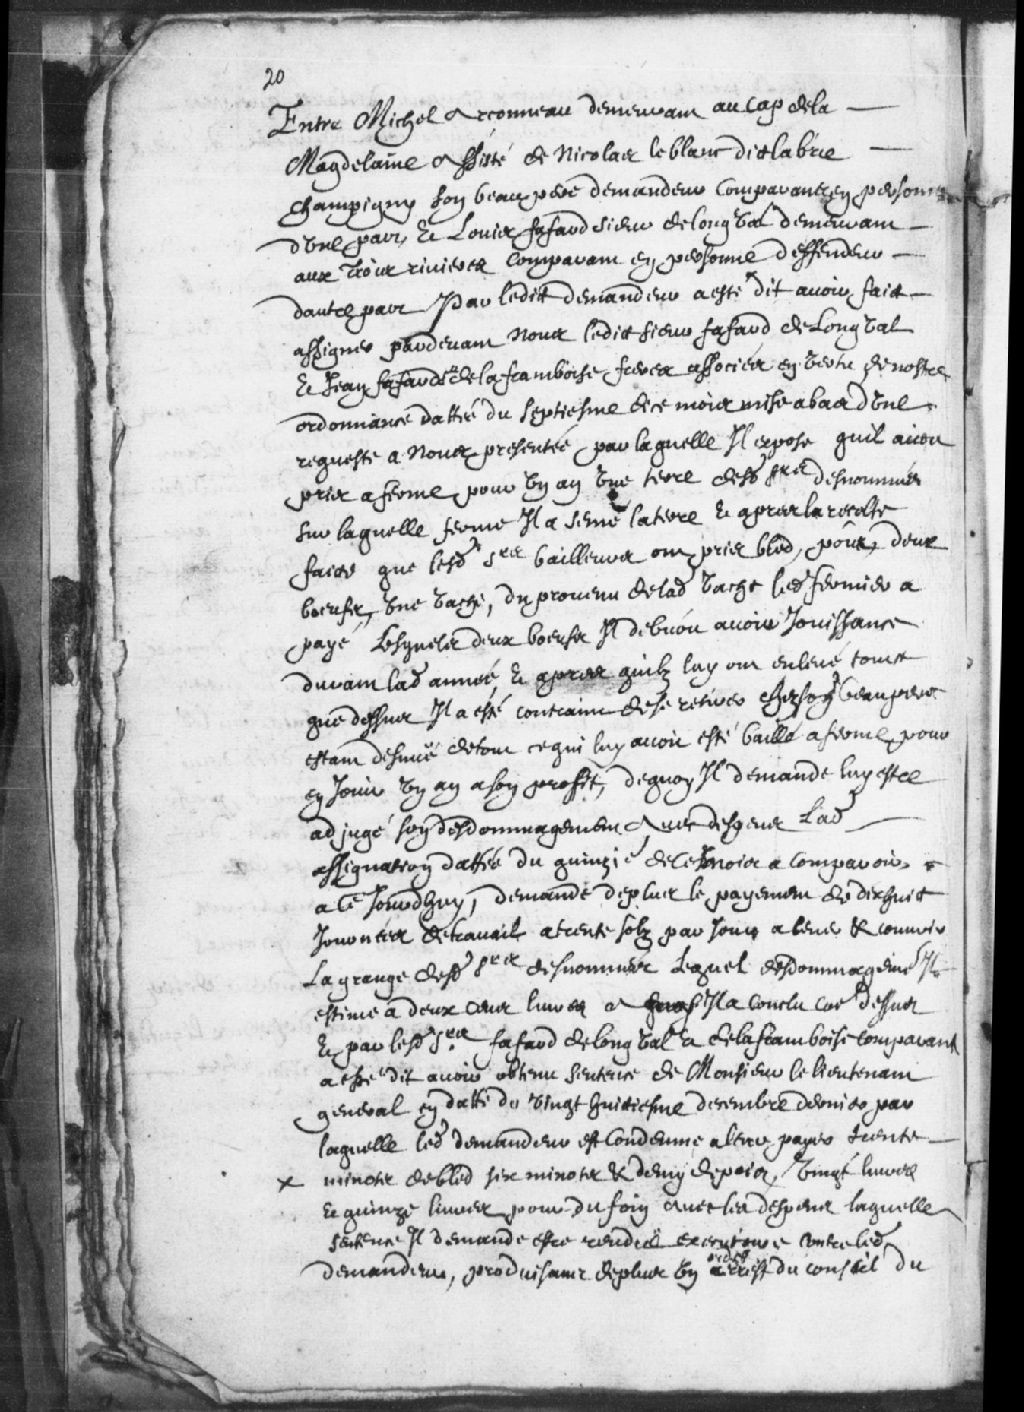 20
Entre Michel Arconneau demeurant au cap dela
Magdelaine Assisté de Nicolas leblanc dit labrie
champigny son beau pere demandeur Comparant en personne
d'Une part, Et Louis fafard sieur de longval demeurant
aux trois rivieres Comparant en personne deffendeur
dautre part Par ledit demandeur a esté dit avoir fait
assigner pardevant Nous ledit sieur fafard de Longval
Et Jean fafard sr de la framboise freres associés en vertu de nostre
ordonnance dattée du septiesme de ce mois mise abas d'Une
requeste a Nous presentée par laquelle Il expose quil avoit
pris a ferme pour Un an Une terre desd srs desnommés
sur laquelle ferme Il a semé la terre Et apres la recolte
faite que lesd srs bailleurs ont pris bled, pois, deux
boeufs, Une vache, du provenu de lad vache led fermier a
payé Lesquels deux boeufs Il debvoit avoir Jouissance
durant lad année Et apres quilz luy ont enlevé tout
que dessus Il a esté contraint de se retirer chez son beau pere
estant desnué de tout ce qui luy avoit esté baillé a ferme pour
en Jouir Un an a son proffit, dequoy Il demande luy estre
adjugé son desdommagement Avec despens Lad
assignation dattée du quinzie de ce mois a comparoir
a ce Jourdhuy, demande de plus le payement de dix huit
Journées de travail a trente solz par Jour a lever & couvrir
La grange desd srs desnommés Lequel desdommagemt Il
estime a deux cent livres a Il a conclu coe dessus
Et par lesd srs fafard de longval Et de la framboise comparant
a esté dit avoir obtenu sentence de Monsieur le lieutenant
general en datte du vingt huitiesme decembre dernier par
laquelle led demandeur est Condemné a leur payer trente
x minots de bled six minots & demy de pois, Vingt livres
Et quinze livres pour du foin avec les despens laquelle
sentence Il demande estre rendüe executoire contre led
demandeur, produisant de plus Un arrest du conseil du